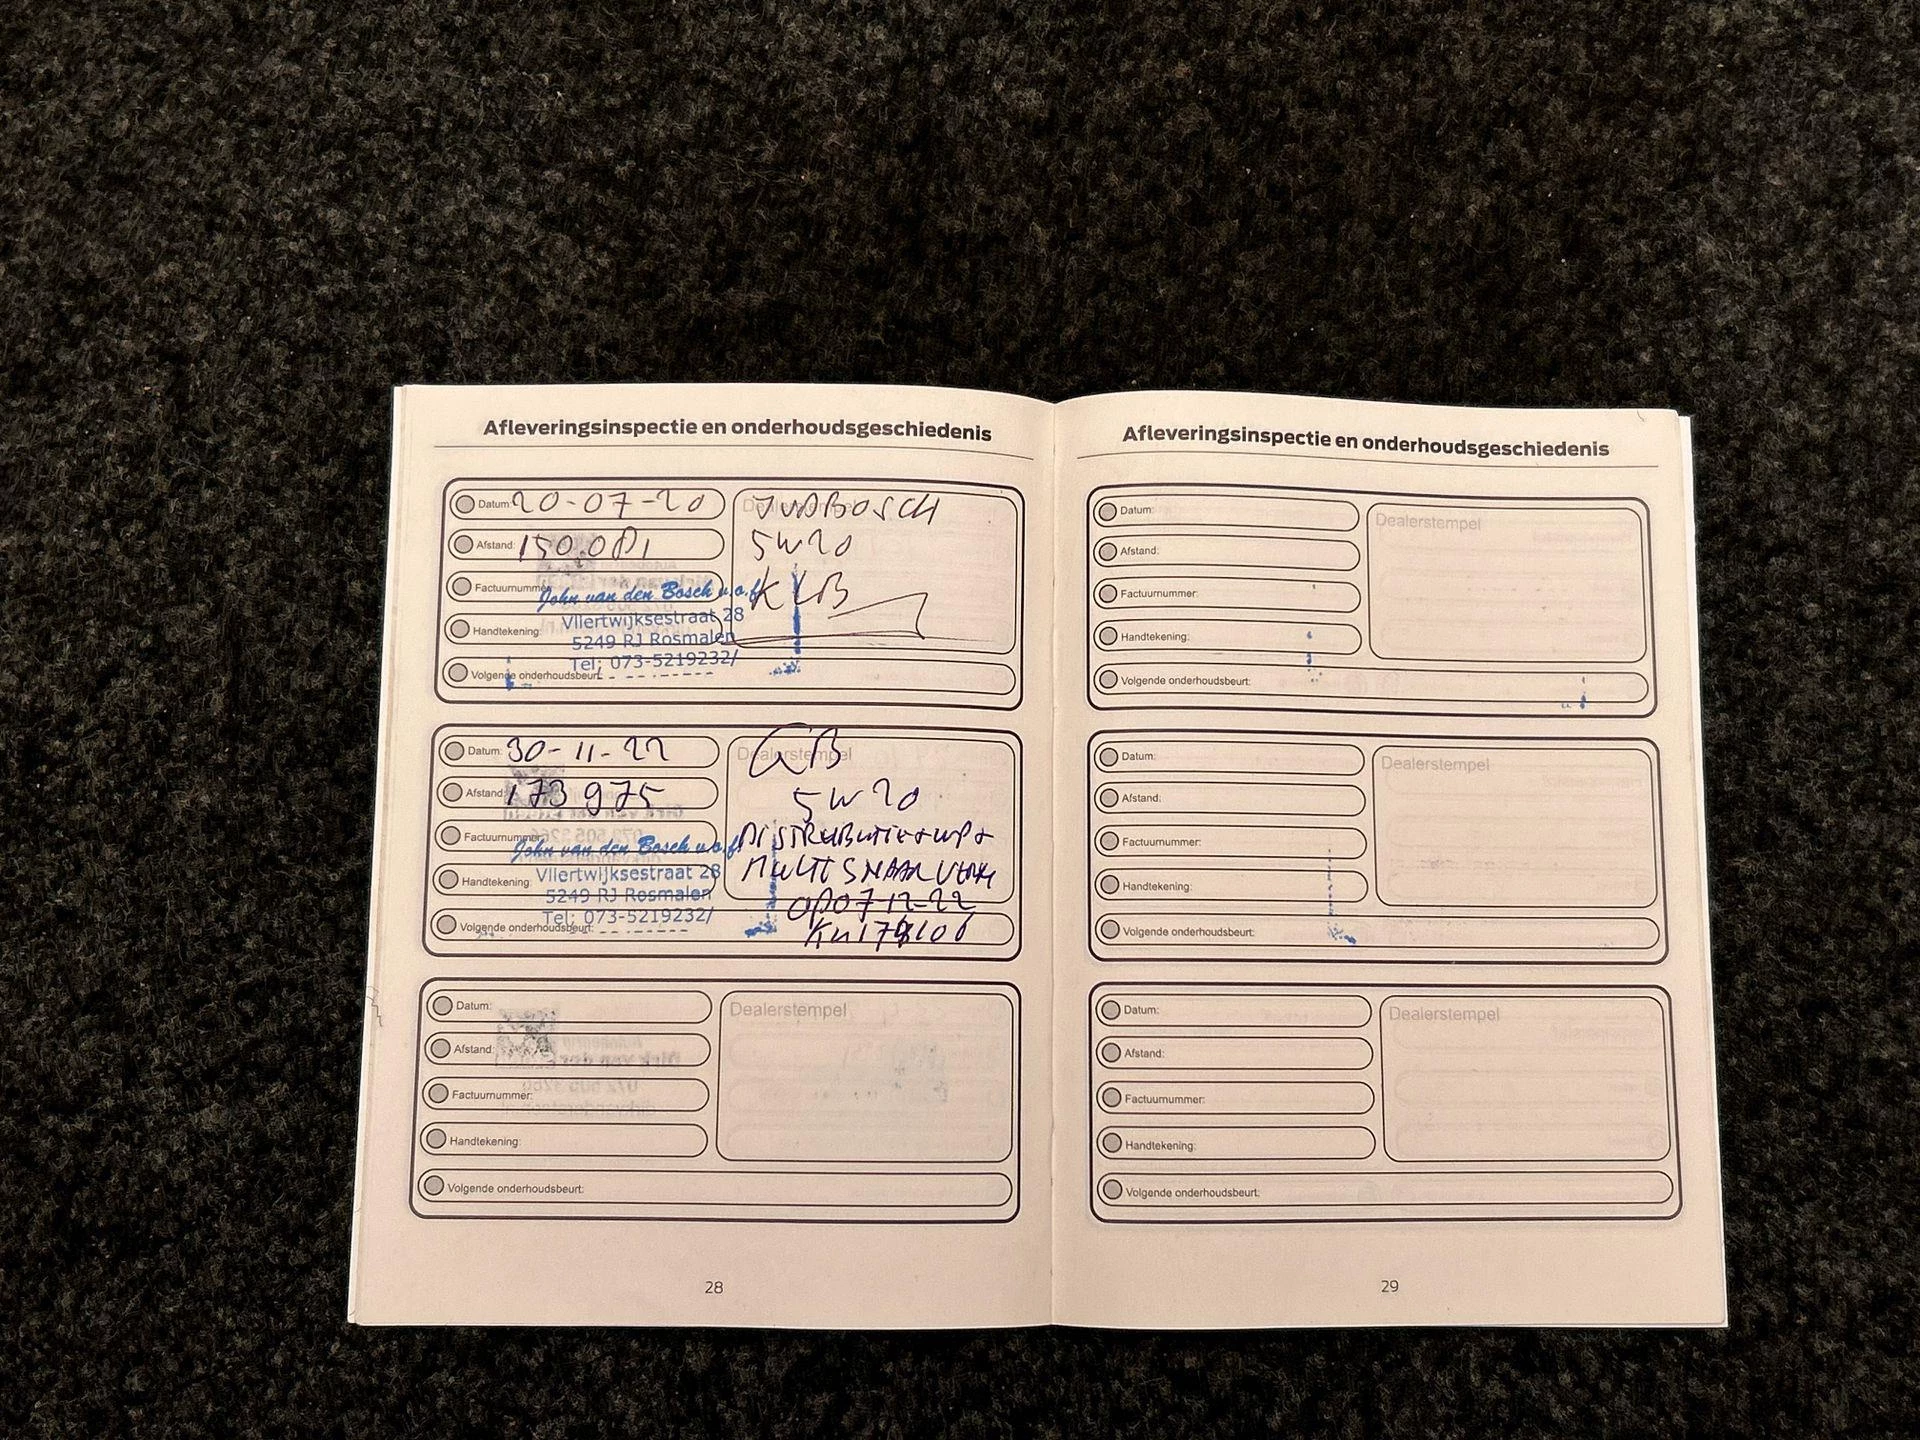 Afleveringsinspectie en onderhoudsgeschiedenis
Datum: 20-07-20
Afstand: 150.001
Factuurnummer:
Handtekening:
Volgende onderhoudsbeurt:
Dealerstempel
JVDBOSCH
5W20
KLB
John van den Bosch v.o.f.
Vliertwijksestraat 28
5249 RJ Rosmalen
Tel: 073-5219232/
Datum: 30-11-22
Afstand: 173975
Factuurnummer:
Handtekening:
Volgende onderhoudsbeurt:
Dealerstempel
GB
5W20
DISTRIBUTIE+WP+
MULTISNAAR VERV
OP 07-12-22
John van den Bosch v.o.f.
Vliertwijksestraat 28
5249 RJ Rosmalen
Tel: 073-5219232/
Datum:
Afstand:
Factuurnummer:
Handtekening:
Volgende onderhoudsbeurt:
Dealerstempel
28
Afleveringsinspectie en onderhoudsgeschiedenis
Datum:
Afstand:
Factuurnummer:
Handtekening:
Volgende onderhoudsbeurt:
Dealerstempel
Datum:
Afstand:
Factuurnummer:
Handtekening:
Volgende onderhoudsbeurt:
Dealerstempel
Datum:
Afstand:
Factuurnummer:
Handtekening:
Volgende onderhoudsbeurt:
Dealerstempel
29